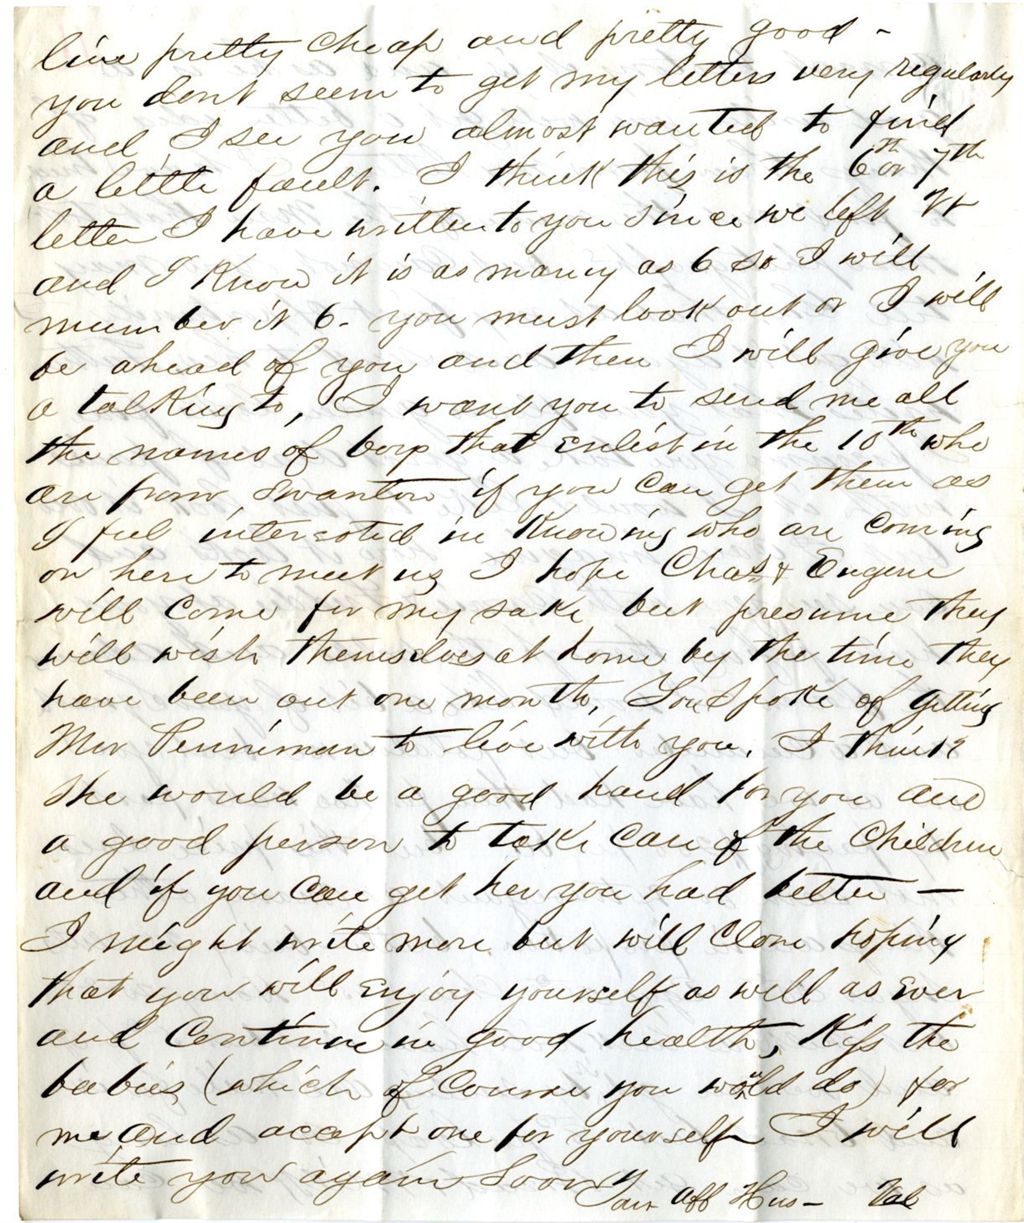 live pretty cheap and pretty good -
you dont seem to get my letters very regularly
and I see you almost wanted to find
a little fault. I think this is the 6th or 7th
letter I have written to you since we left Vt
and I Know it is as many as 6 so I will
number it 6. you must look out or I will
be ahead of you and then I will give you
a talking to, I want you to send me all
the names of boys that Enlist in the 10th who
are from Swanton if you can get them as
I feel interested in Knowing who are coming
on here to meet us I hope Chas & Eugene
will come for my sake but presume they
will wish themselves at home by the time they
have been out one month, You Spoke of getting
Mrs Penniman to live with you. I think
she would be a good hand for you and
a good person to take care of the Children
and if you can get her you had better —
I might write more but will Close hoping
that you will Enjoy yourself as well as Ever
and Continue in good health, Kiss the
babies (which of Course you would do) for
me and accept one for yourself I will
write you again Soon
Your Aff Hus - Val